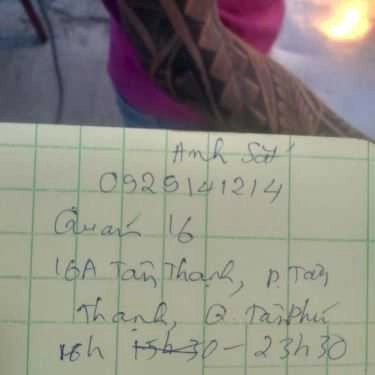 Anh Sơn
0925141214
Quán 16
16A Tân Thạnh, p. Tân
Thạnh, Q. Tân Phú
16h 30 - 23h30